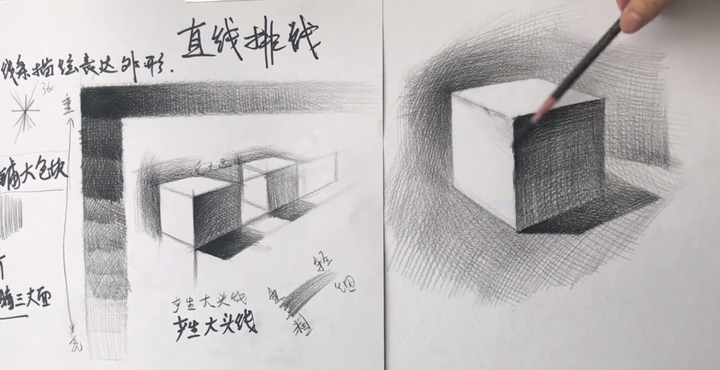 直线排线
线条描绘表达外形.
360
重
铺大色块
三大面
产生大头线
产生大头线
轻
细
重
粗